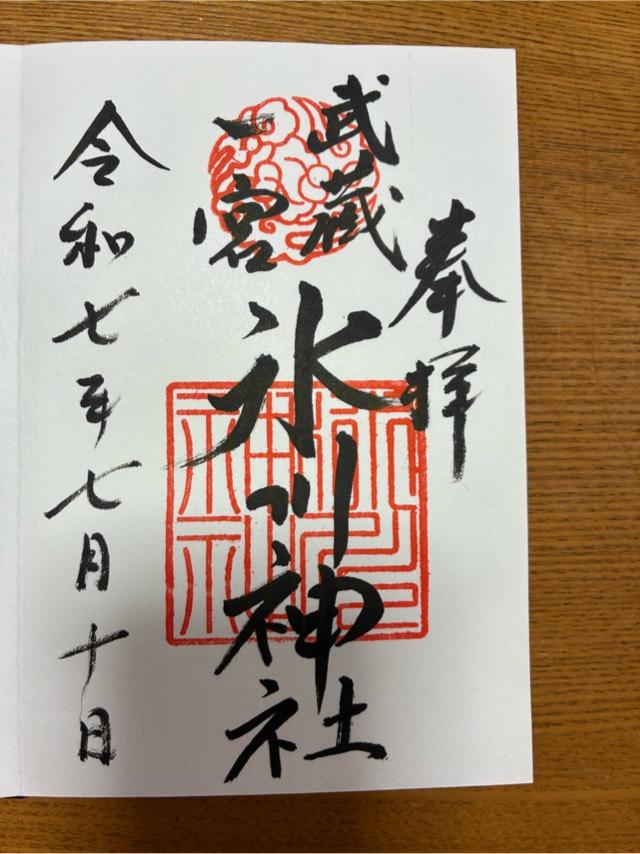 奉拝
武蔵
一宮
氷川神社
令和七年七月十日